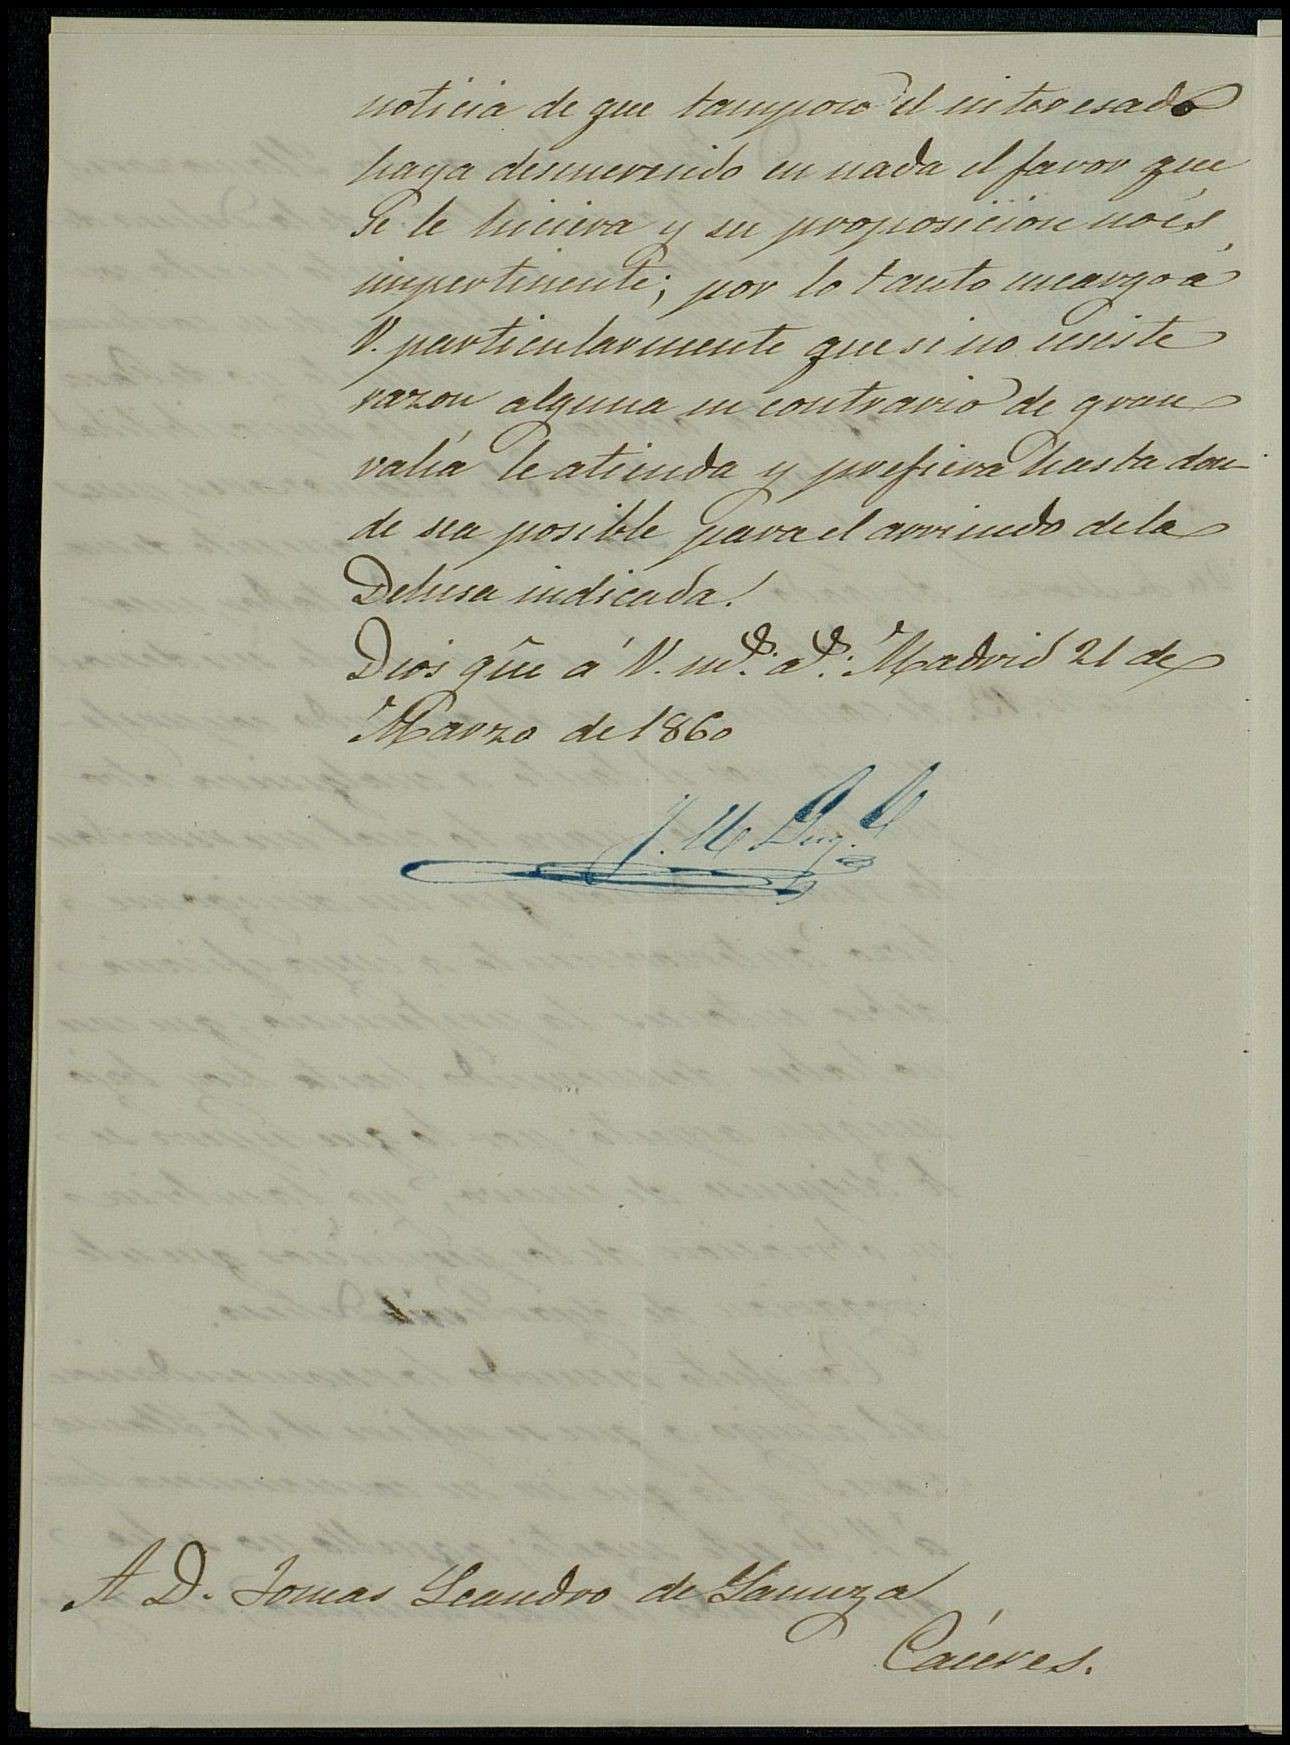 noticia de que tampoco el interesado
haya desmerecido en nada el favor que
se le hiciera y su proposicion no és
impertinente; por lo tanto encargo á
V. particularmente que si no ecsiste
razon alguna en contrario de gran
valía le atienda y prefiera hasta don-
de sea posible para el arriendo de la
Dehesa indicada.
Dios gûe á V. md: ad: Madrid 21 de
Marzo de 1860
J. M.
A D. Tomas Leandro de Lamuza
Cáceres.